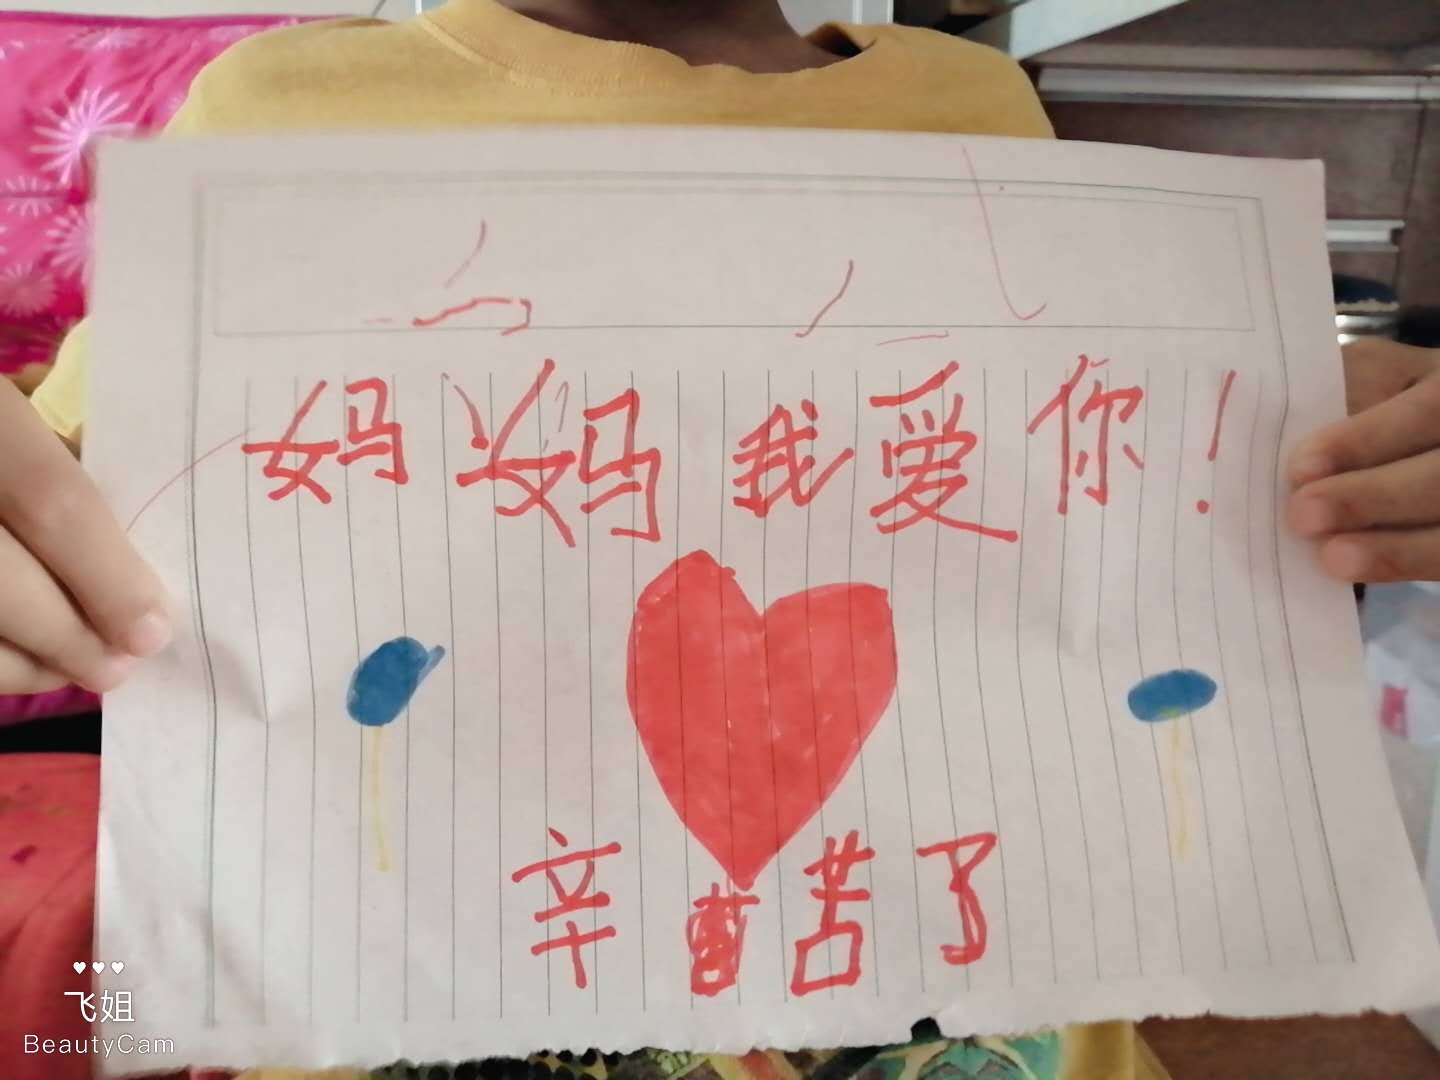 妈妈我爱你！
辛苦了
飞姐
BeautyCam